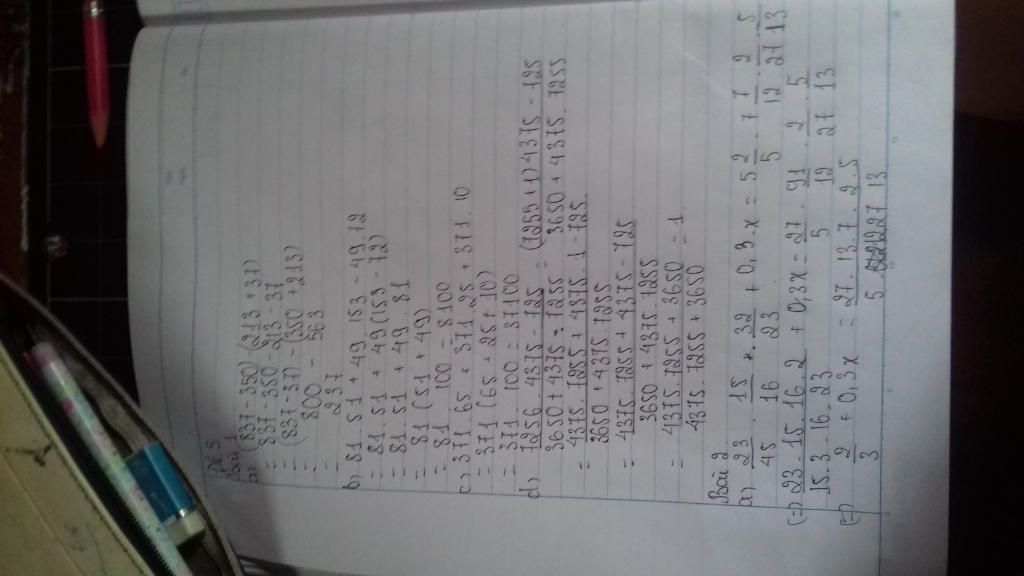 Đề 5
Bài 1
a) (837 - 350) - (213 + 37)
= 837 - 350 - 213 - 37
= (837 - 37) - (350 + 213)
= 800 - 563
= 237
b) 81 . 51 + 49 . 153 - 49 . 72
= 81 . 51 + 49 (153 - 72)
= 81 . 51 + 49 . 81
= 81 (51 + 49)
= 81 . 100 = 8100
c) 371 . 65 + 371 . 25 + 371 . 10
= 371 (65 + 25 + 10)
= 371 . 100 = 37100
d) 7256 . 4375 - 725 = (7255 + 1) 4375 - 725
3650 + 4375 . 7255 3650 + 4375 . 7255
= 4375 . 7255 + 4375 . 1 - 725
3650 + 4375 . 7255
= 4375 . 7255 + 4375 - 725
3650 + 4375 . 7255
= 4375 . 7255 + 3650 = 1
4375 . 7255 + 3650
Bài 2
a) 23/45 . 15/16 . 32/23 + 0,3 . x = 5 2/5 . 7 7/12 . 2/27 . 5/13
(=) 23 . 15 . 16 . 2 / 15 . 3 . 16 . 23 + 0,3x = 27/5 . 91/12 . 2/27 . 5/13
(=) 2/3 + 0,3x = 27 . 13 . 7 . 2 . 5